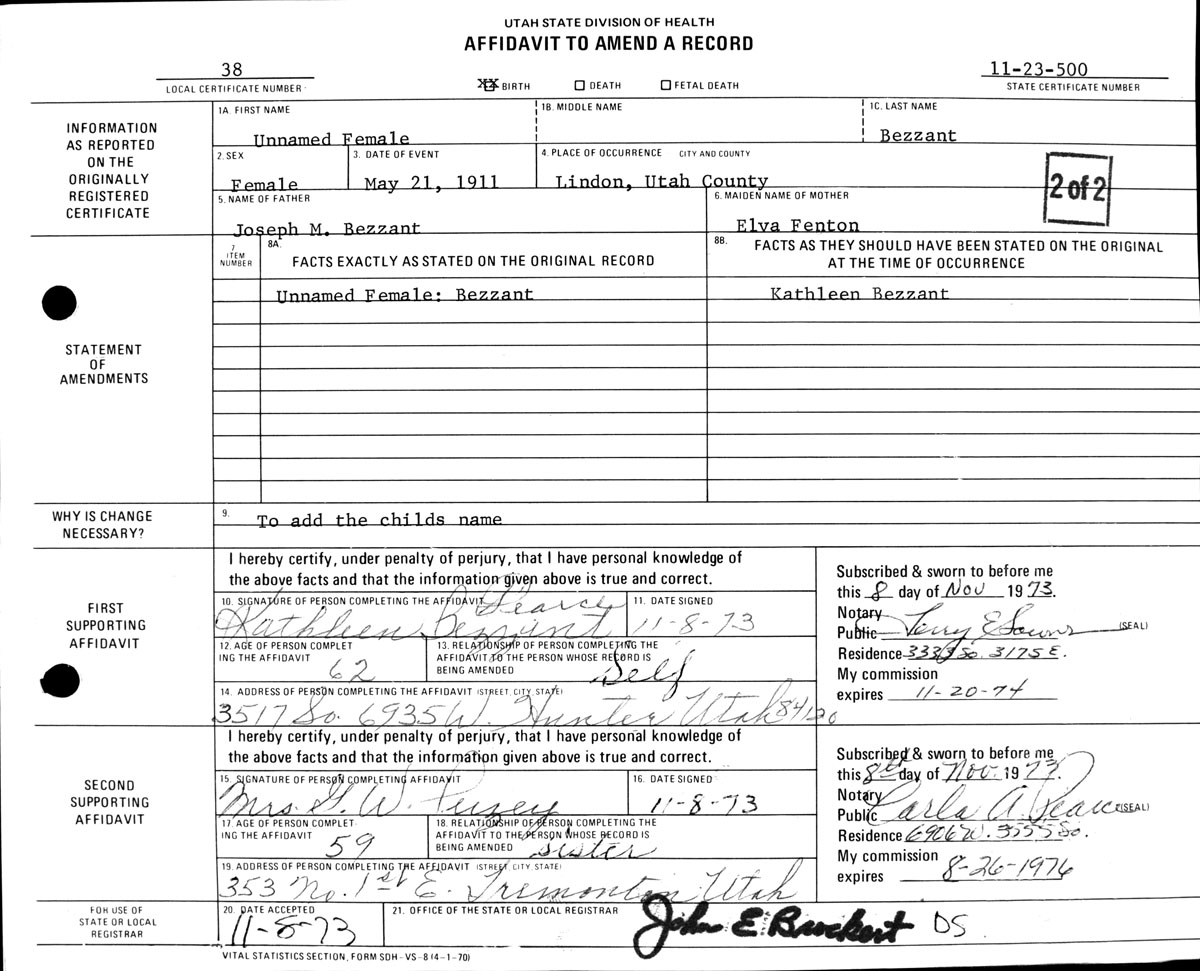 UTAH STATE DIVISION OF HEALTH
AFFIDAVIT TO AMEND A RECORD
38
LOCAL CERTIFICATE NUMBER
XX BIRTH
DEATH
FETAL DEATH
11-23-500
STATE CERTIFICATE NUMBER
INFORMATION
AS REPORTED
ON THE
ORIGINALLY
REGISTERED
CERTIFICATE
1A. FIRST NAME
Unnamed Female
1B. MIDDLE NAME
1C. LAST NAME
Bezzant
2. SEX
Female
3. DATE OF EVENT
May 21, 1911
4. PLACE OF OCCURRENCE CITY AND COUNTY
Lindon, Utah County
2 of 2
5. NAME OF FATHER
Joseph M. Bezzant
6. MAIDEN NAME OF MOTHER
Elva Fenton
STATEMENT
OF
AMENDMENTS
7
ITEM
NUMBER
8A.
FACTS EXACTLY AS STATED ON THE ORIGINAL RECORD
8B.
FACTS AS THEY SHOULD HAVE BEEN STATED ON THE ORIGINAL
AT THE TIME OF OCCURRENCE
Unnamed Female: Bezzant
Kathleen Bezzant
WHY IS CHANGE
NECESSARY?
9.
To add the childs name
FIRST
SUPPORTING
AFFIDAVIT
I hereby certify, under penalty of perjury, that I have personal knowledge of
the above facts and that the information given above is true and correct.
10. SIGNATURE OF PERSON COMPLETING THE AFFIDAVIT
Kathleen Bezzant Pearce
11. DATE SIGNED
11-8-73
12. AGE OF PERSON COMPLET
ING THE AFFIDAVIT
62
13. RELATIONSHIP OF PERSON COMPLETING THE
AFFIDAVIT TO THE PERSON WHOSE RECORD IS
BEING AMENDED
Self
14. ADDRESS OF PERSON COMPLETING THE AFFIDAVIT (STREET, CITY, STATE)
3517 So. 6935 W. Hunter Utah 84120
Subscribed & sworn to before me
this 8 day of Nov 1973.
Notary
Public Terry E (SEAL)
Residence So. 3175 E.
My commission
expires 11-20-74
SECOND
SUPPORTING
AFFIDAVIT
I hereby certify, under penalty of perjury, that I have personal knowledge of
the above facts and that the information given above is true and correct.
15. SIGNATURE OF PERSON COMPLETING AFFIDAVIT
Mrs. G. W.
16. DATE SIGNED
11-8-73
17. AGE OF PERSON COMPLET-
ING THE AFFIDAVIT
59
18. RELATIONSHIP OF PERSON COMPLETING THE
AFFIDAVIT TO THE PERSON WHOSE RECORD IS
BEING AMENDED
sister
19. ADDRESS OF PERSON COMPLETING THE AFFIDAVIT (STREET, CITY, STATE)
353 No. 1st E. Tremonton Utah
Subscribed & sworn to before me
this 8th day of Nov. 1973.
Notary
Public Carla A. Pearce (SEAL)
Residence 6906 W. 3555 So.
My commission
expires 8-26-1976
FOR USE OF
STATE OR LOCAL
REGISTRAR
20. DATE ACCEPTED
11-8-73
21. OFFICE OF THE STATE OR LOCAL REGISTRAR
John E. Brockert DS
VITAL STATISTICS SECTION, FORM SDH-VS-8 (4-1-70)